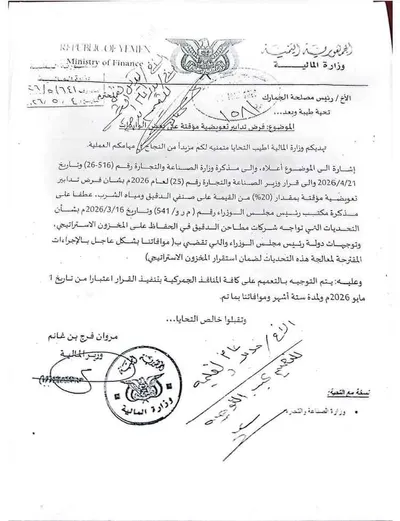 REPUBLIC OF YEMEN
Ministry of Finance
الجمهورية اليمنية
وزارة المالية
الأخ/ رئيس مصلحة الجمارك
تحية طيبة وبعد...
الموضوع: فرض تدابير تعويضية مؤقتة على بعض الواردات
يهديكم وزارة المالية اطيب التحايا متمنيه لكم مزيداً من النجاح في مهامكم العملية.
إشارة الى الموضوع أعلاه، والى مذكرة وزارة الصناعة والتجارة رقم (516-26) وتاريخ
2026/4/21 والى قرار وزير الصناعة والتجارة رقم (25) لعام 2026م بشان فرض تدابير
تعويضية مؤقتة بمقدار (20%) من القيمة على صنفي الدقيق ومياه الشرب، عطفا على
مذكرة مكتب رئيس مجلس الوزراء رقم (م ر و/541) وتاريخ 2026/3/16م بشأن
التحديات التي تواجه شركات مطاحن الدقيق في الحفاظ على المخزون الاستراتيجي،
وتوجيهات دولة رئيس مجلس الوزراء والتي تقضي ب( موافاتنا بشكل عاجل بالإجراءات
المقترحة لمعالجة هذه التحديات لضمان استقرار المخزون الاستراتيجي)
وعليه: يتم التوجيه بالتعميم على كافة المنافذ الجمركية بتنفيذ القرار اعتبارا من تاريخ 1
مايو 2026م ولمدة ستة أشهر وموافاتنا بما تم.
وتقبلوا خالص التحايا...
مروان فرج بن غانم
وزير المالية
وزارة المالية
نسخة مع التحية:
وزارة الصناعة والتجارة